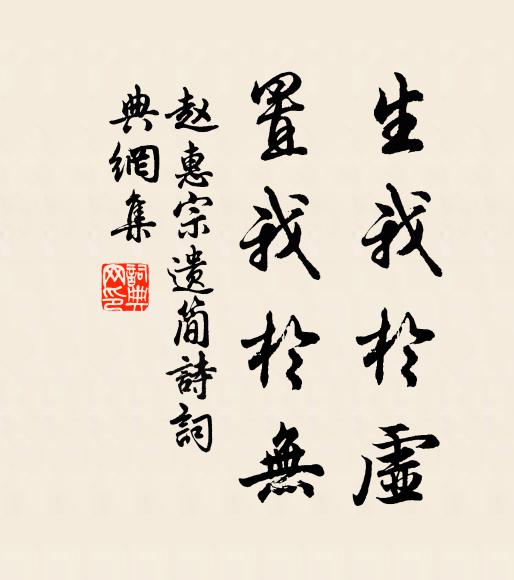 生我於虛
置我於無
赵惠宗遗简詩詞
典網集
詞典网印